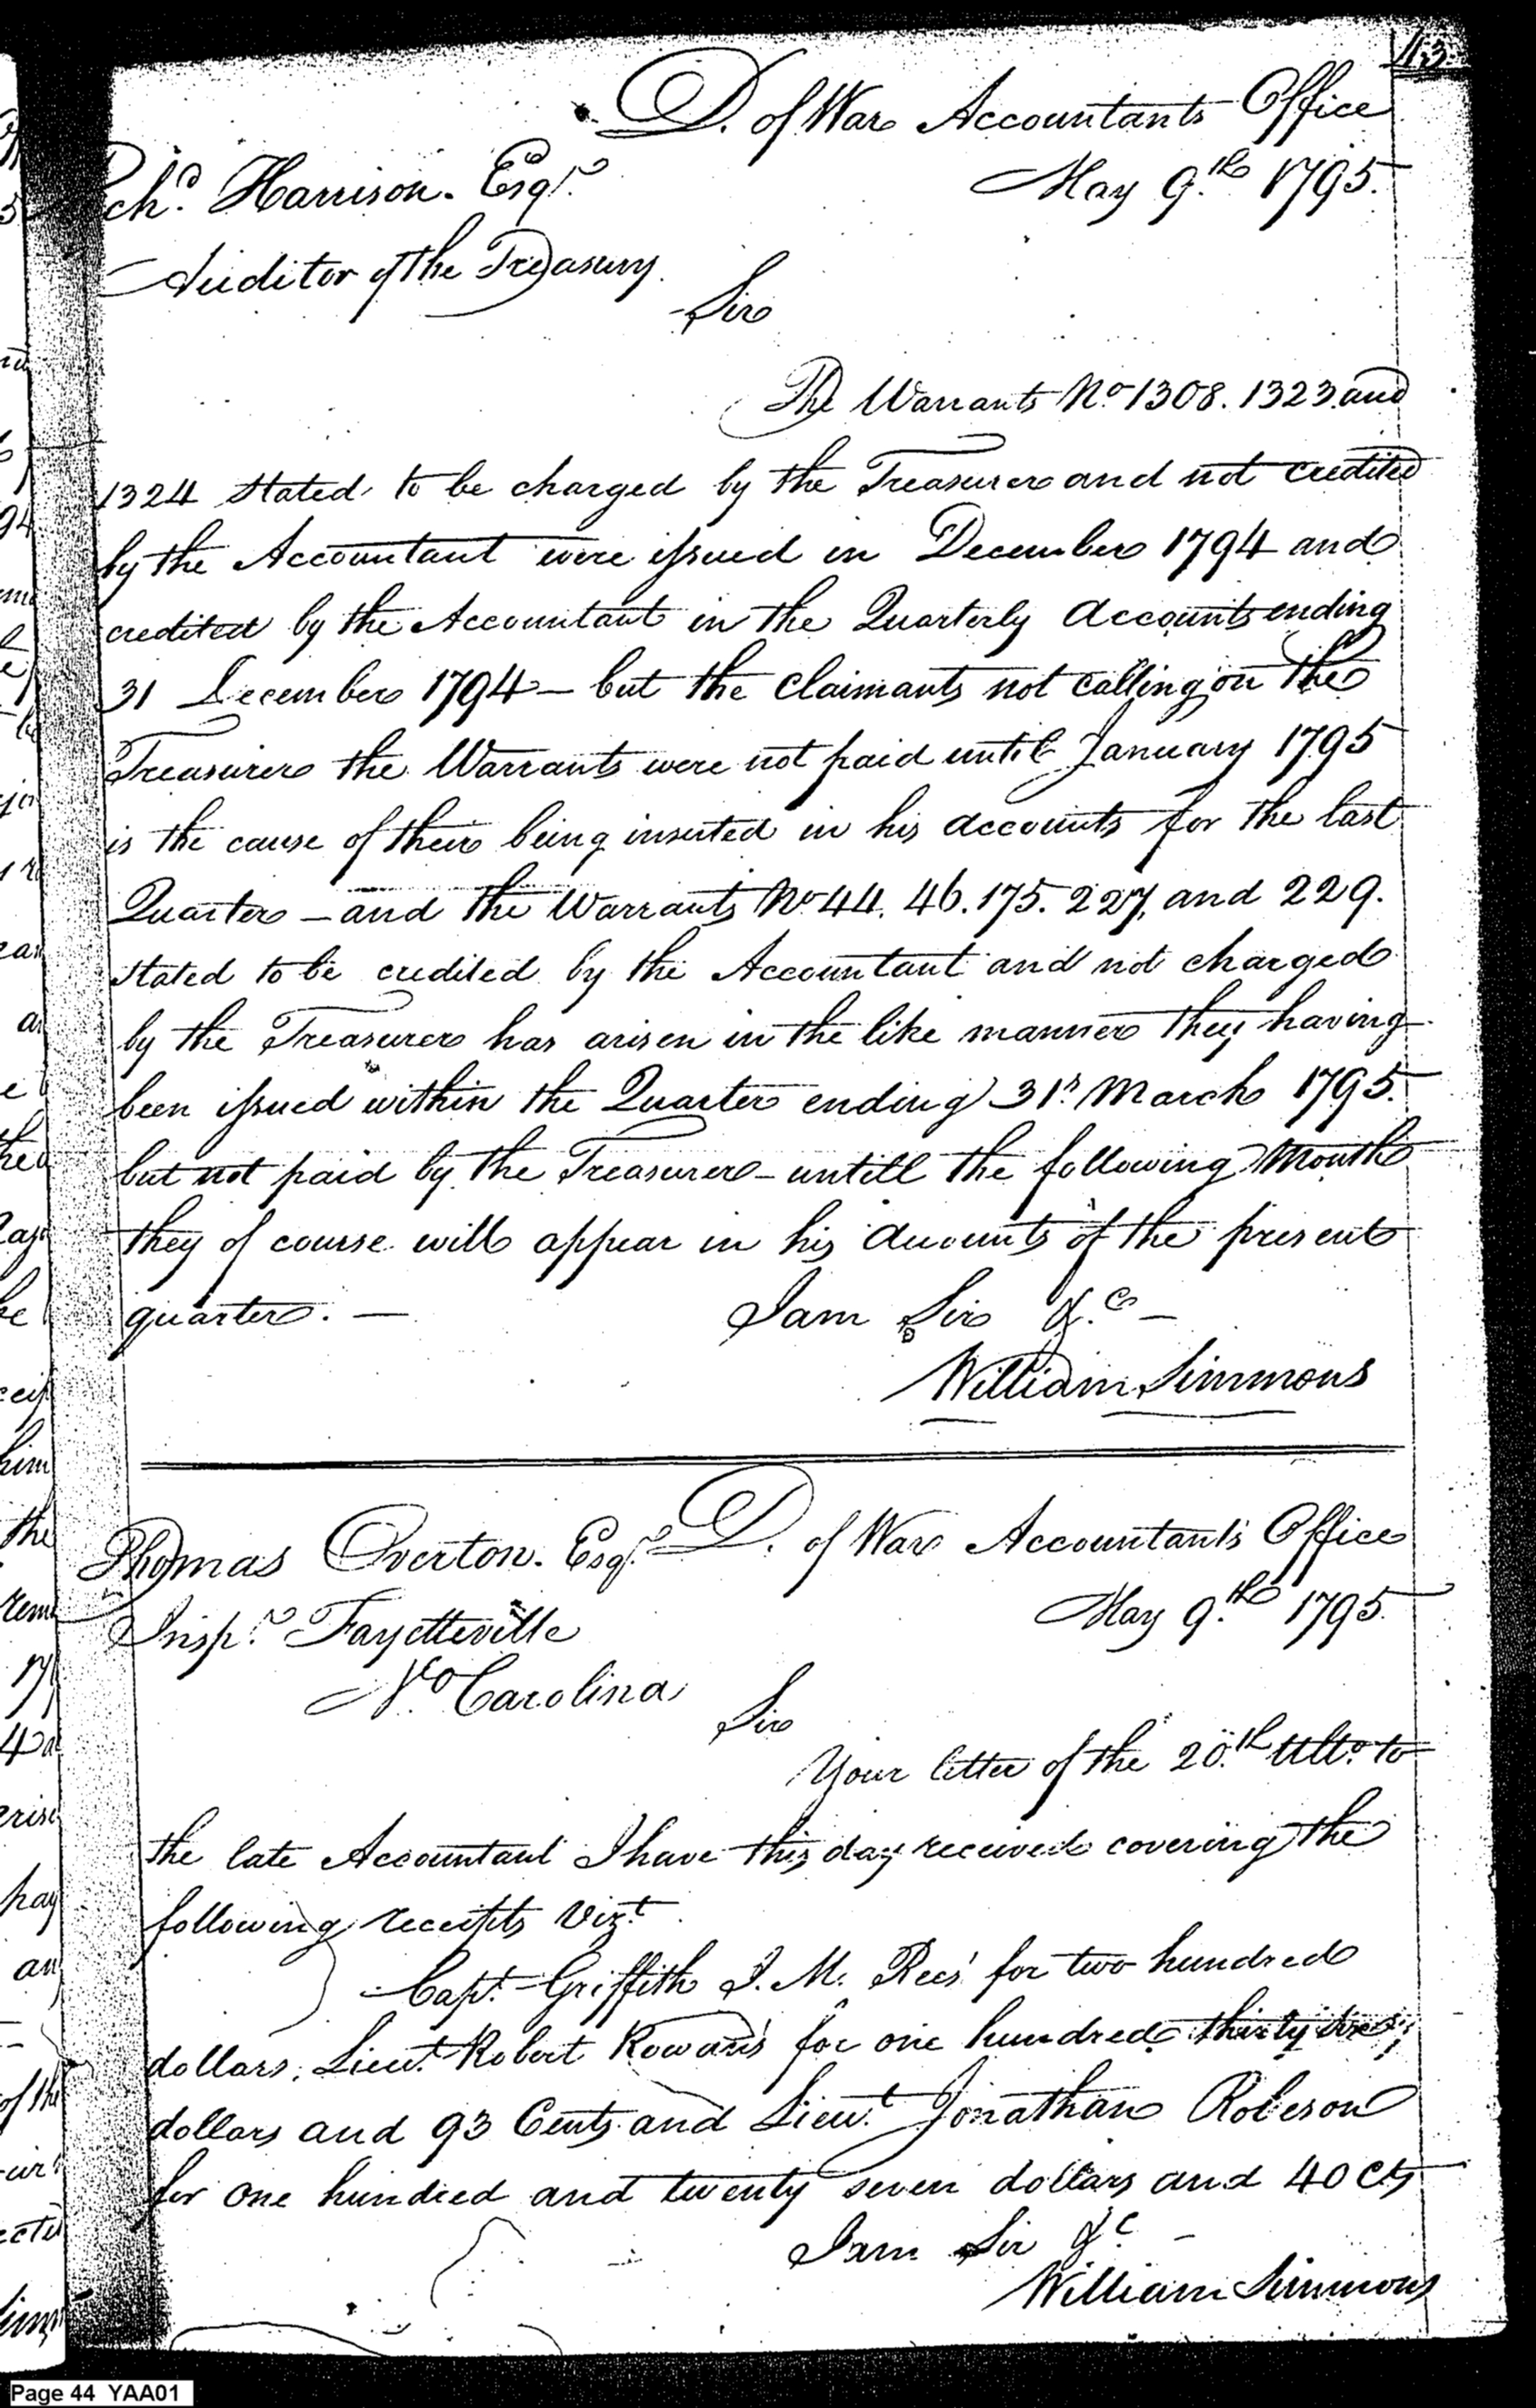 43
D. of War Accountants Office
Rich.d Harrison. Esq.r
May 9.th 1795.
Auditor of the Treasury.
Sir
The Warrants No. 1308. 1323. and
1324 stated to be charged by the Treasurer and not credited
by the Accountant were issued in December 1794 and
credited by the Accountant in the Quarterly Accounts ending
31 December 1794 – but the claimants not calling on the
Treasurer the Warrants were not paid until January 1795
is the cause of their being inserted in his accounts for the last
Quarter – and the Warrants No 44. 46. 175. 227, and 229.
stated to be credited by the Accountant and not charged
by the Treasurer has arisen in the like manner they having
been issued within the Quarter ending 31st March 1795.
but not paid by the Treasurer – untill the following Month
they of course will appear in his Accounts of the present
quarter. —
I am Sir &.c –
William Simmons
Thomas Overton. Esq.r D. of War Accountant's Office
Insp.r Fayetteville
May 9.th 1795.
No. Carolina
Sir
Your letter of the 20.th Ulto. to
the late Accountant I have this day received covering the
following receipts Vizt.
Capt. Griffith J. M. Rees' for two hundred
dollars, Lieut. Robert Rowan's for one hundred thirty
dollars and 93 Cents and Lieut. Jonathan Roberson
for one hundred and twenty seven dollars and 40 Cts
I am Sir &c –
William Simmons
Page 44 YAA01